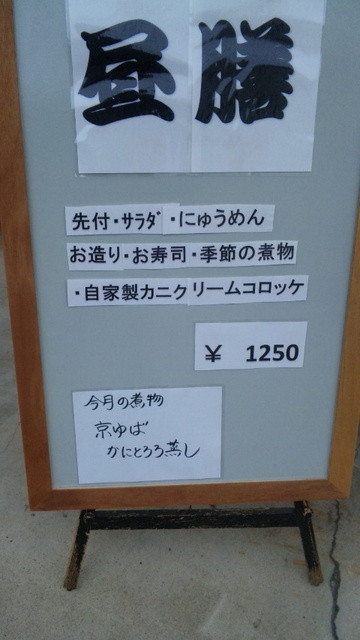 昼膳
先付・サラダ・にゅうめん
お造り・お寿司・季節の煮物
・自家製カニクリームコロッケ
¥ 1250
今月の煮物
京ゆば
かにとろろ蒸し